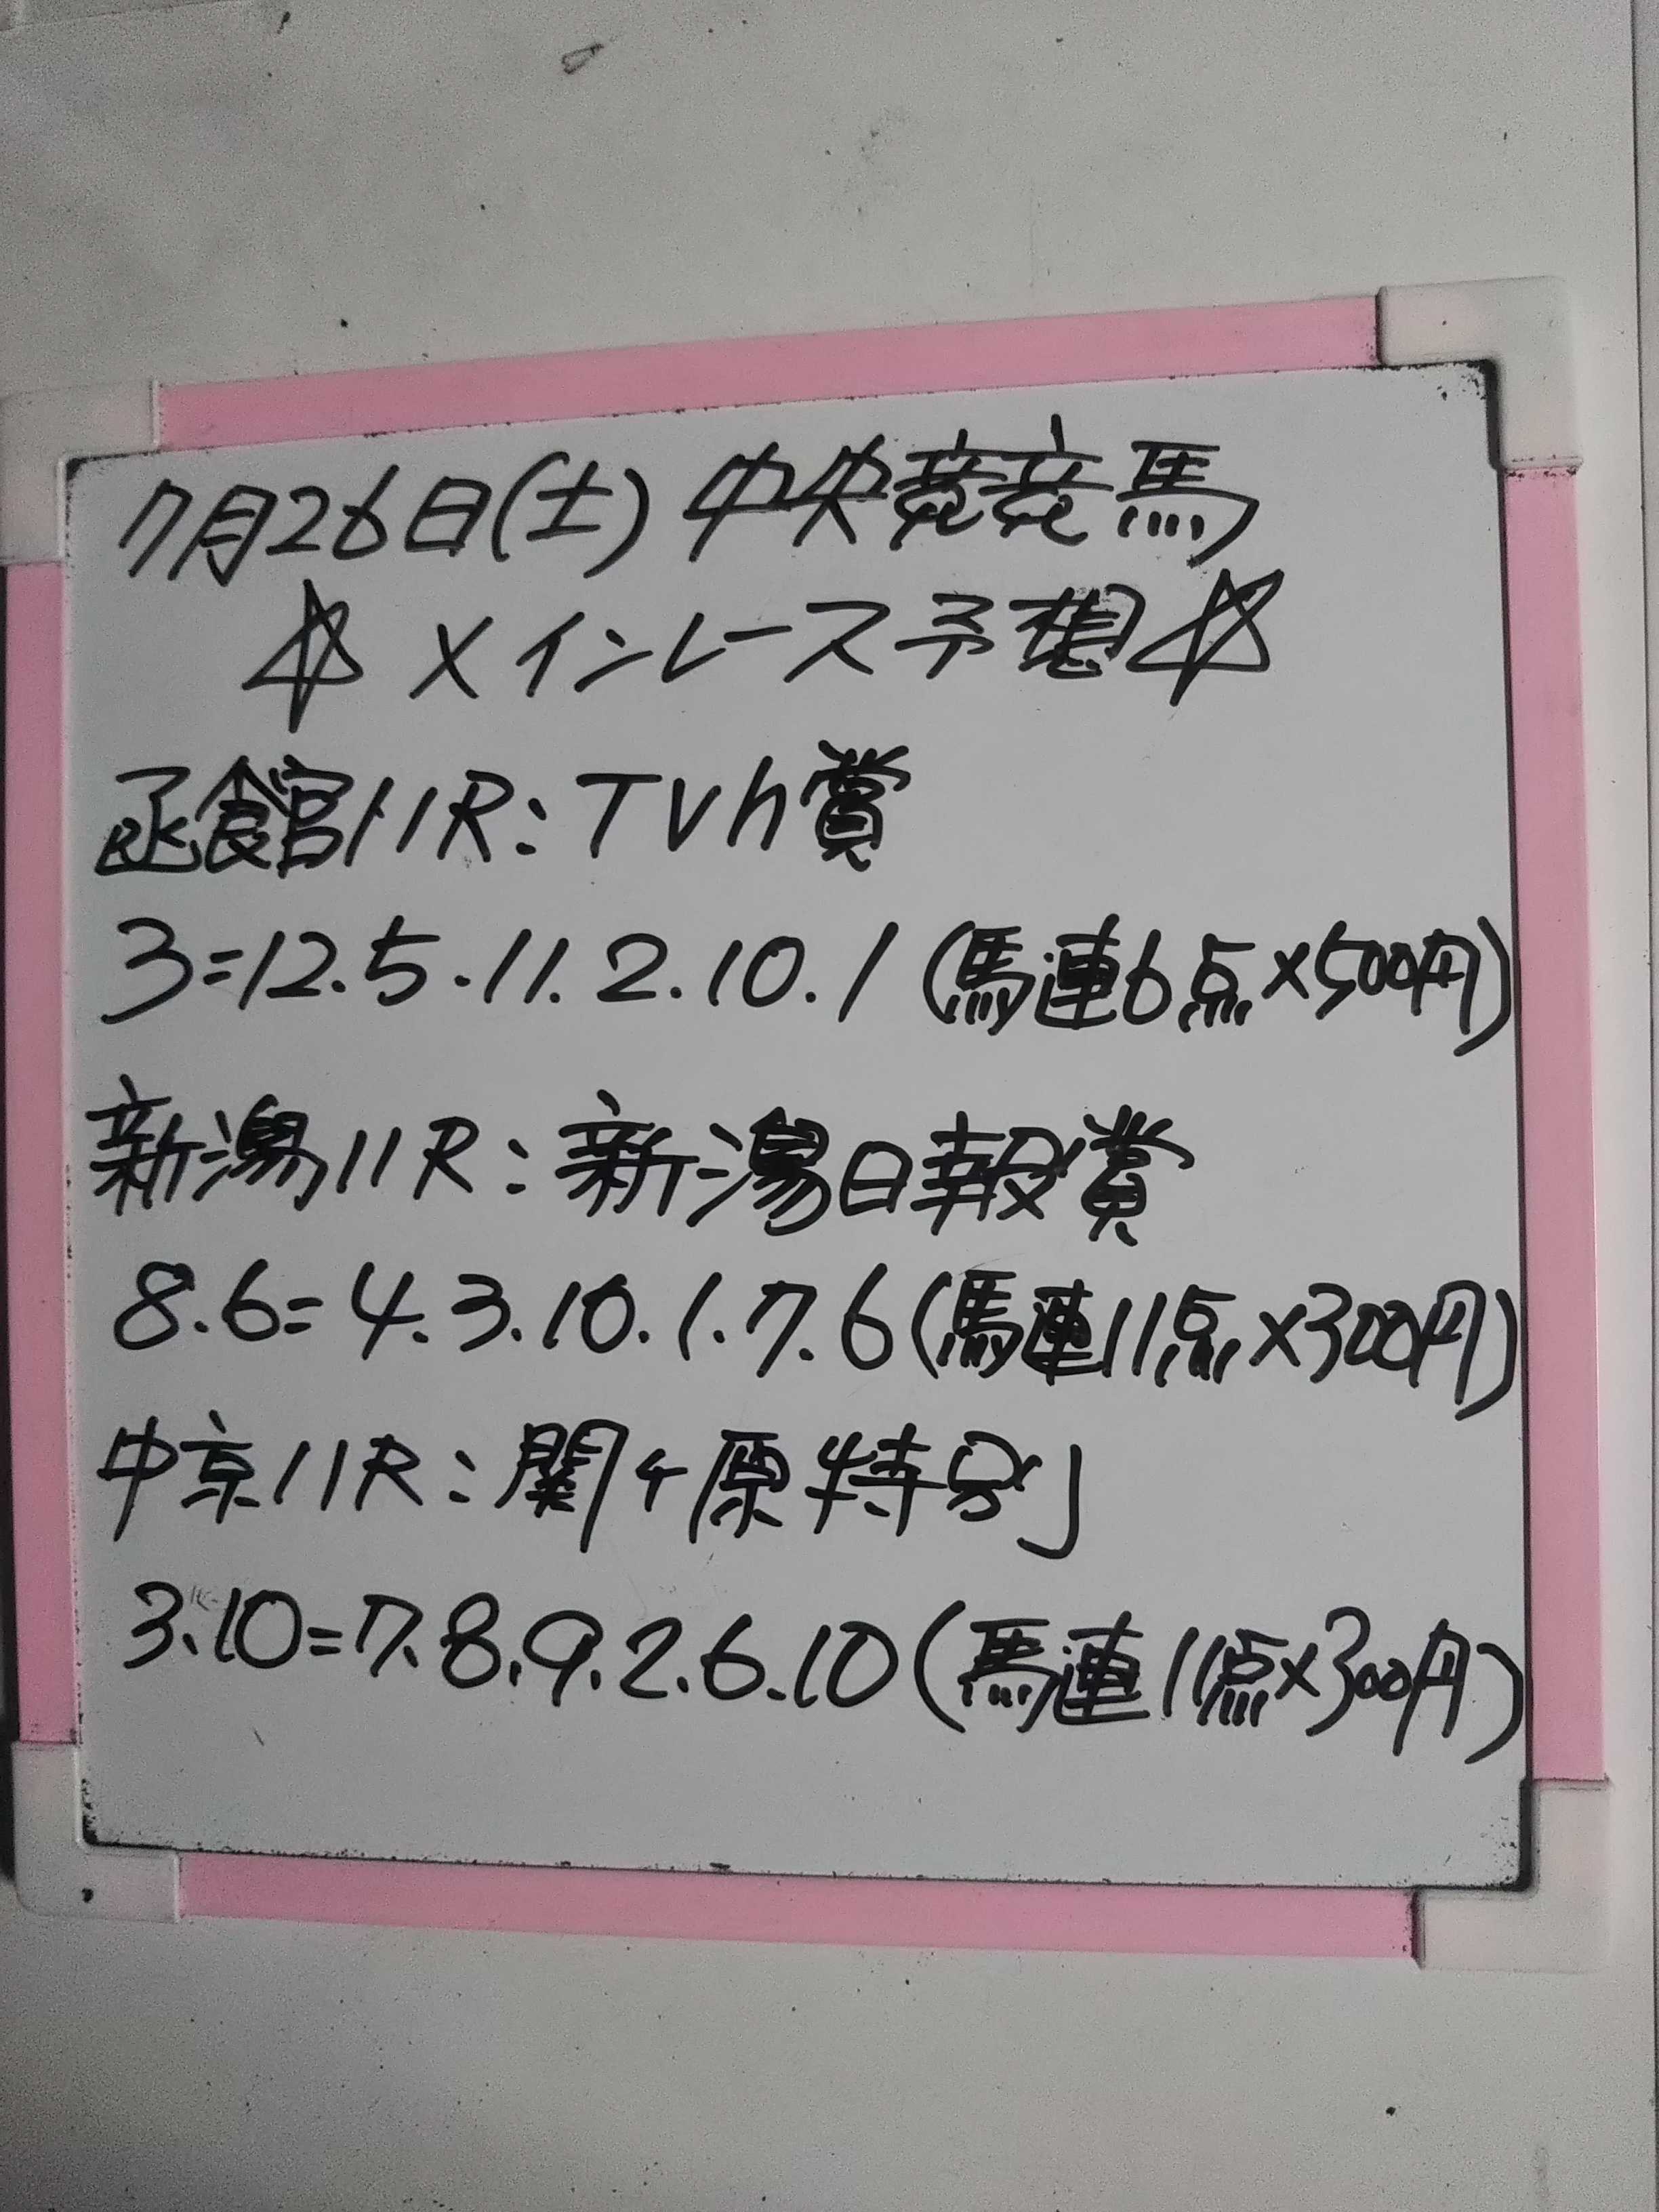 7月26日(土)中央競馬
☆メインレース予想☆
函館11R:TVh賞
3=12.5.11.2.10.1(馬連6点×500円)
新潟11R:新潟日報賞
8.6=4.3.10.1.7.6(馬連11点×300円)
中京11R:関ヶ原特別
3.10=7.8.9.2.6.10(馬連11点×300円)